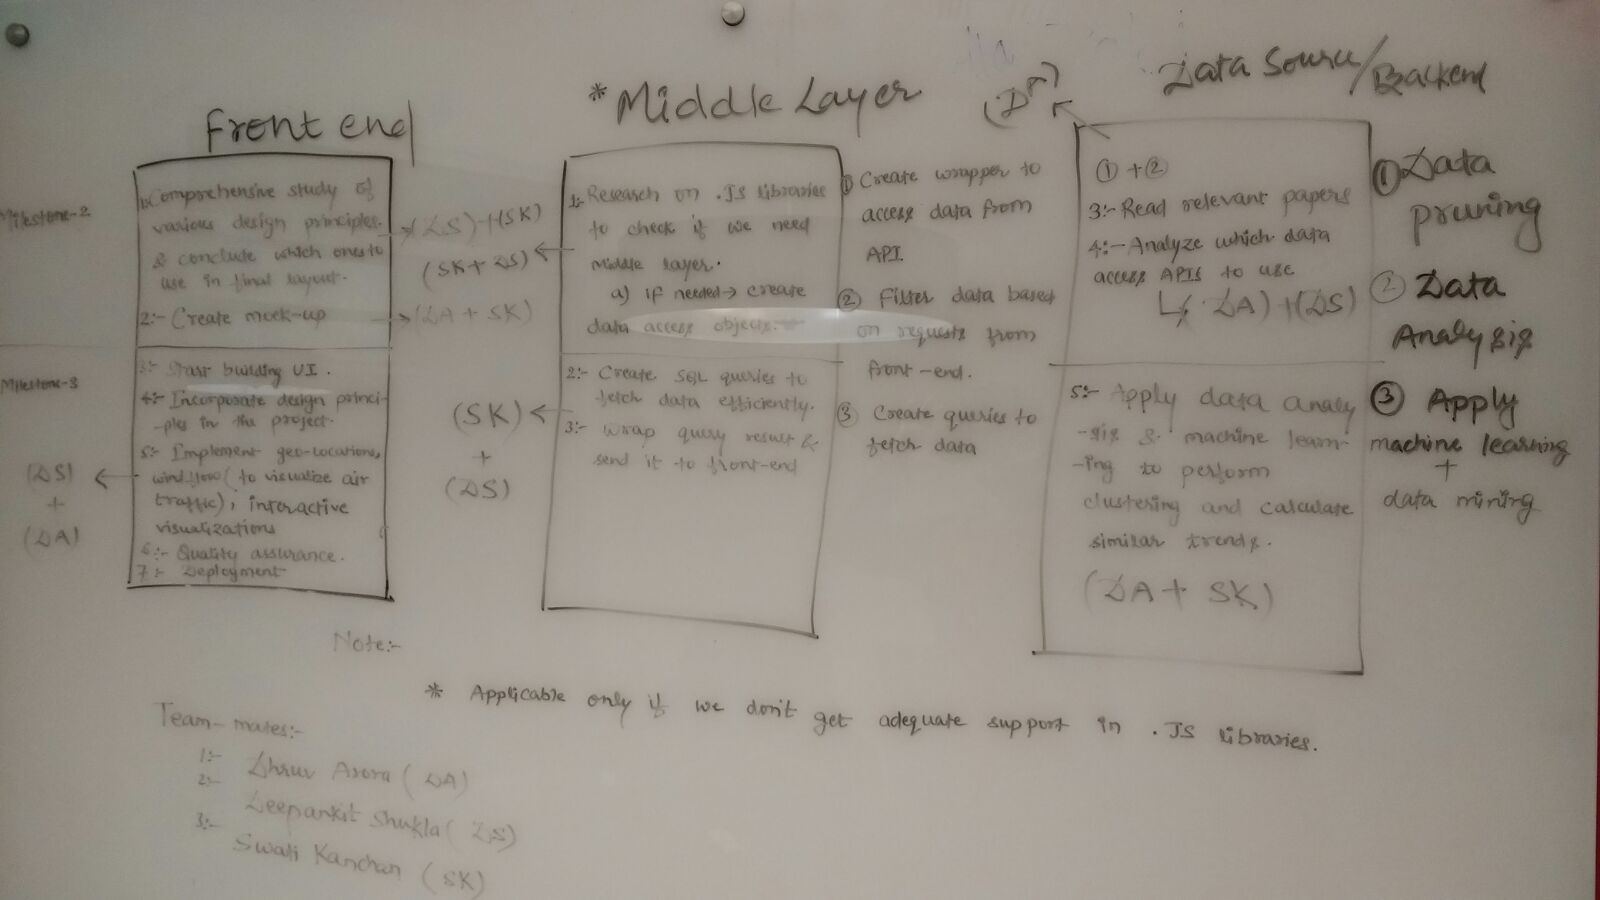 Front end
Milestone-2
1:-Comprehensive study of
various design principles.
& conclude which ones to
use in final layout.
→(DS)+(SK)
2:- Create mock-up
→(DA + SK)
Milestone-3
3:- Start building UI.
4:- Incorporate design princi-
-ples in the project.
5:- Implement geo-locations,
wind flow (to visualize air
traffic), interactive
visualizations
6:- Quality assurance.
7:- Deployment
(DS)
+
(DA)
*Middle Layer
1:- Research on .JS libraries
to check if we need
Middle layer.
a) if needed→ create
data access objects.
(SK+DS)
2:- Create SQL queries to
fetch data efficiently.
3:- Wrap query result &
send it to front-end
(SK)
+
(DS)
① Create wrapper to
access data from
API.
② Filter data based
on requests from
front-end.
③ Create queries to
fetch data
Data Source/
Backend
① + ②
3:- Read relevant papers
4:- Analyze which data
access APIs to use
↳ (DA)+(DS)
5:- Apply data analy
-sis & machine learn-
-ing to perform
clustering and calculate
similar trends.
(DA + SK)
① Data
pruning
② Data
Analysis
③ Apply
machine learning
+
data mining
Note:-
* Applicable only if we don't get adequate support in .JS libraries.
Team-mates:-
1:- Dhruv Arora (DA)
2:- Deepankit Shukla (DS)
3:- Swati Kanchan (SK)